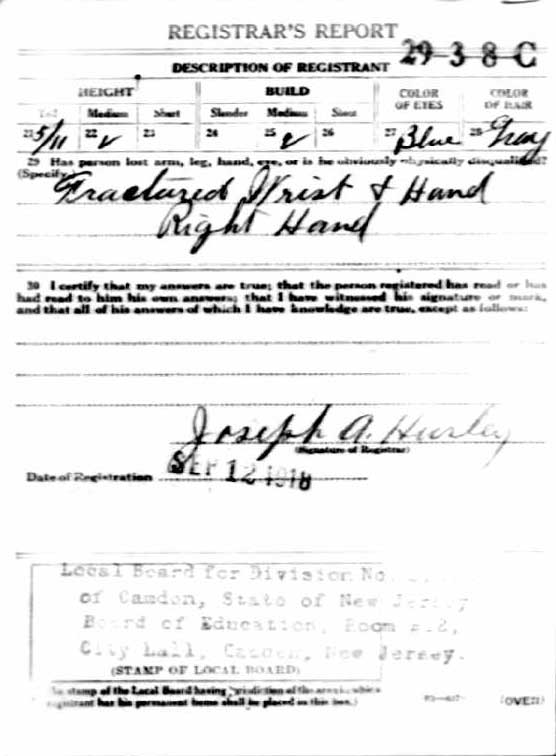 REGISTRAR'S REPORT
29-3-8-C
DESCRIPTION OF REGISTRANT
HEIGHT BUILD COLOR OF EYES COLOR OF HAIR
Tall Medium Short Slender Medium Stout
21 5/11 22 ✓ 23 24 25 ✓ 26 27 Blue 28 Gray
29 Has person lost arm, leg, hand, eye, or is he obviously physically disqualified?
(Specify.) Fractured Wrist & Hand
Right Hand
30 I certify that my answers are true; that the person registered has read or has
had read to him his own answers; that I have witnessed his signature or mark,
and that all of his answers of which I have knowledge are true, except as follows:
Joseph A. Hurley
(Signature of Registrar)
Date of Registration SEP 12 1918
Local Board for Division No.
of Camden, State of New Jersey
Board of Education, Room
City Hall, Camden, New Jersey.
(STAMP OF LOCAL BOARD)
(The stamp of the Local Board having jurisdiction of the area in which
registrant has his permanent home shall be placed in this box.)
(OVER)